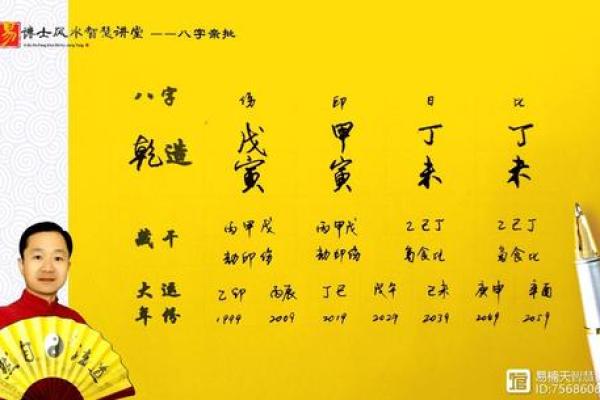 易 博士风水智慧讲堂 ——八字亲批
八字 伤 印 日 比
乾造 戊 甲 丁 丁
寅 寅 未 未
藏干 丙甲戊 丙甲戊 乙己丁 乙己丁
劫印伤 劫印伤 枭食比 枭食比
大运 乙卯 丙辰 丁巳 戊午 己未 庚申 辛酉
年份 1999 2009 2019 2029 2039 2049 2059
易楠天智慧
ID:7568606